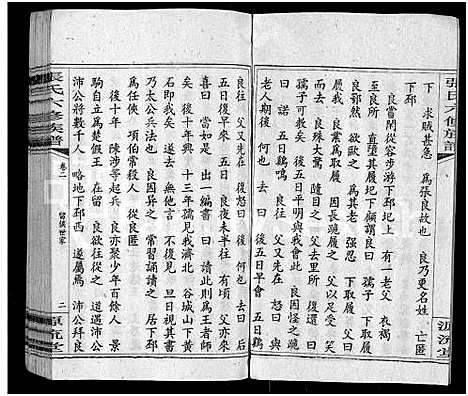 張氏六修族譜
下　求賊甚急　為張良故也　良乃更名姓　亡匿
下邳
良嘗閒從容步游下邳圯上　有一老父　衣褐
至良所　直墮其履圯下　顧謂良曰　孺子　下取履
良鄂然　欲歐之　為其老　強忍　下取履　父
曰　履我　良業為取履　因長跪履之　父以足受　笑
而去　良殊大驚　隨目之　父去里所　復還　曰
孺子可教矣　後五日平明與我會此　良因怪之　跪
曰　諾　五日平明　良往　父已先在　怒曰　與
老人期後　何也　去　曰　後五日早會　五日鷄鳴
良往　父又先在　復怒曰　後　何也　去曰　後
五日復早來　五日　良夜未半往　有頃　父亦來
喜曰　當如是　出一編書　曰　讀此則為王者師
矣　後十年　興　十三年孺子見我濟北　穀城山下黃
石即我矣　遂去　無他言　不復見　旦日視其書
乃太公兵法也　良因異之　常習誦讀之　居下邳
為任俠　項伯常殺人　從良匿
後十年　陳涉等起兵　良亦聚少年百餘人　景
駒自立為楚假王　在留　良欲往從之　道還沛公
沛公將數千人　略地下邳西　遂屬焉　沛公拜良
張氏六修族譜
卷二
留侯世家
二